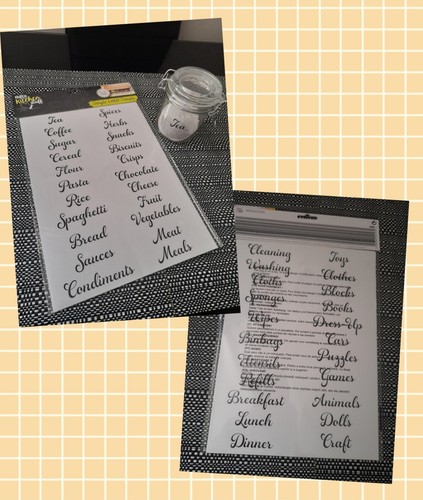 Tea
Coffee
Sugar
Cereal
Flour
Pasta
Rice
Spaghetti
Bread
Sauces
Condiments
Spices
Herbs
Snacks
Biscuits
Crisps
Chocolate
Cheese
Fruit
Vegetables
Meat
Meals
Tea
Cleaning
Washing
Cloths
Sponges
Wipes
Binbags
Utensils
Refills
Breakfast
Lunch
Dinner
Toys
Clothes
Blocks
Books
Dress-Up
Cars
Puzzles
Games
Animals
Dolls
Craft